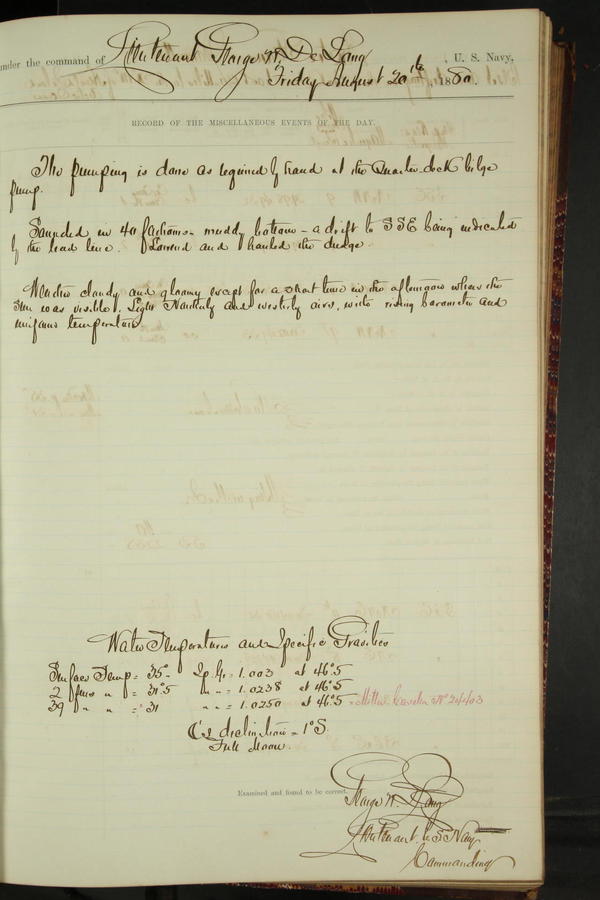 under the command of Lieutenant George W. De Long, U. S. Navy,
Friday August 20th, 1880.
RECORD OF THE MISCELLANEOUS EVENTS OF THE DAY.
The pumping is done as required by hand at the Quarter deck bilge
pump.
Sounded in 40 fathoms - muddy bottom - a drift to SSE being indicated
by the lead line. Lowered and hauled the dredge.
Weather cloudy and gloomy except for a short time in the afternoon when the
Sun was visible. Light Northerly and westerly airs, with rising barometer and
uniform temperature.
Water Temperatures and Specific Gravities
Surface Temp = 35°- Sp. Gr = 1.003 at 46°.5
2 fms " " = 31°.5 " " = 1.0238 at 46°.5
39 " " = 31 " " = 1.0250 at 46°.5 - Miller Casella No 24403
☾'s declination = 1° S.
Full Moon.
Examined and found to be correct.
George W. De Long
Lieutenant U.S Navy
Commanding